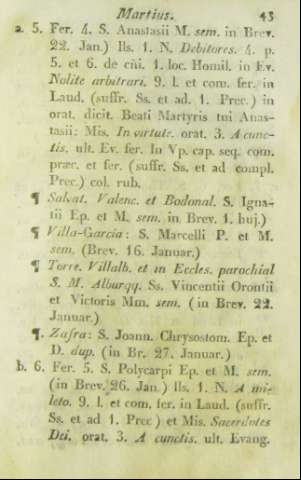 Martius. 43
a. 5. Fer. 4. S. Anastasii M. sem. in Brev.
22. Jan.) lls. 1. N. Debitores. 4. p.
5. et 6. de cñi. 1. loc. Homil. in Ev.
Nolite arbitrari. 9. l. et com. fer. in
Laud. (suffr. Ss. et ad. 1. Prec.) in
orat. dicit. Beati Martyris tui Anas-
tasii: Mis. In virtute. orat. 3. A cunc-
tis. ult. Ev. fer. In Vp. cap. seq. com.
præc. et fer. (suffr. Ss. et ad compl.
Prec.) col. rub.
¶ Salvat. Valenc. et Bodonal. S. Igna-
tii Ep. et M. sem. in Brev. 1. huj.)
¶ Villa-Garcia: S. Marcelli P. et M.
sem. (Brev. 16. Januar.)
¶ Torre. Villalb. et in Eccles. parochial
S. M. Alburqq. Ss. Vincentii Orontii
et Victoris Mm. sem. (in Brev. 22.
Januar.)
¶. Zafra: S. Joann. Chrysostom. Ep. et
D. dup. (in Br. 27. Januar.)
b. 6. Fer. 5. S. Polycarpi Ep. et M. sem.
(in Brev. 26. Jan.) lls. 1. N. A mi-
leto. 9. l. et com. fer. in Laud. (suffr.
Ss. et ad 1. Prec.) et Mis. Sacerdotes
Dei. orat. 3. A cunctis. ult. Evang.